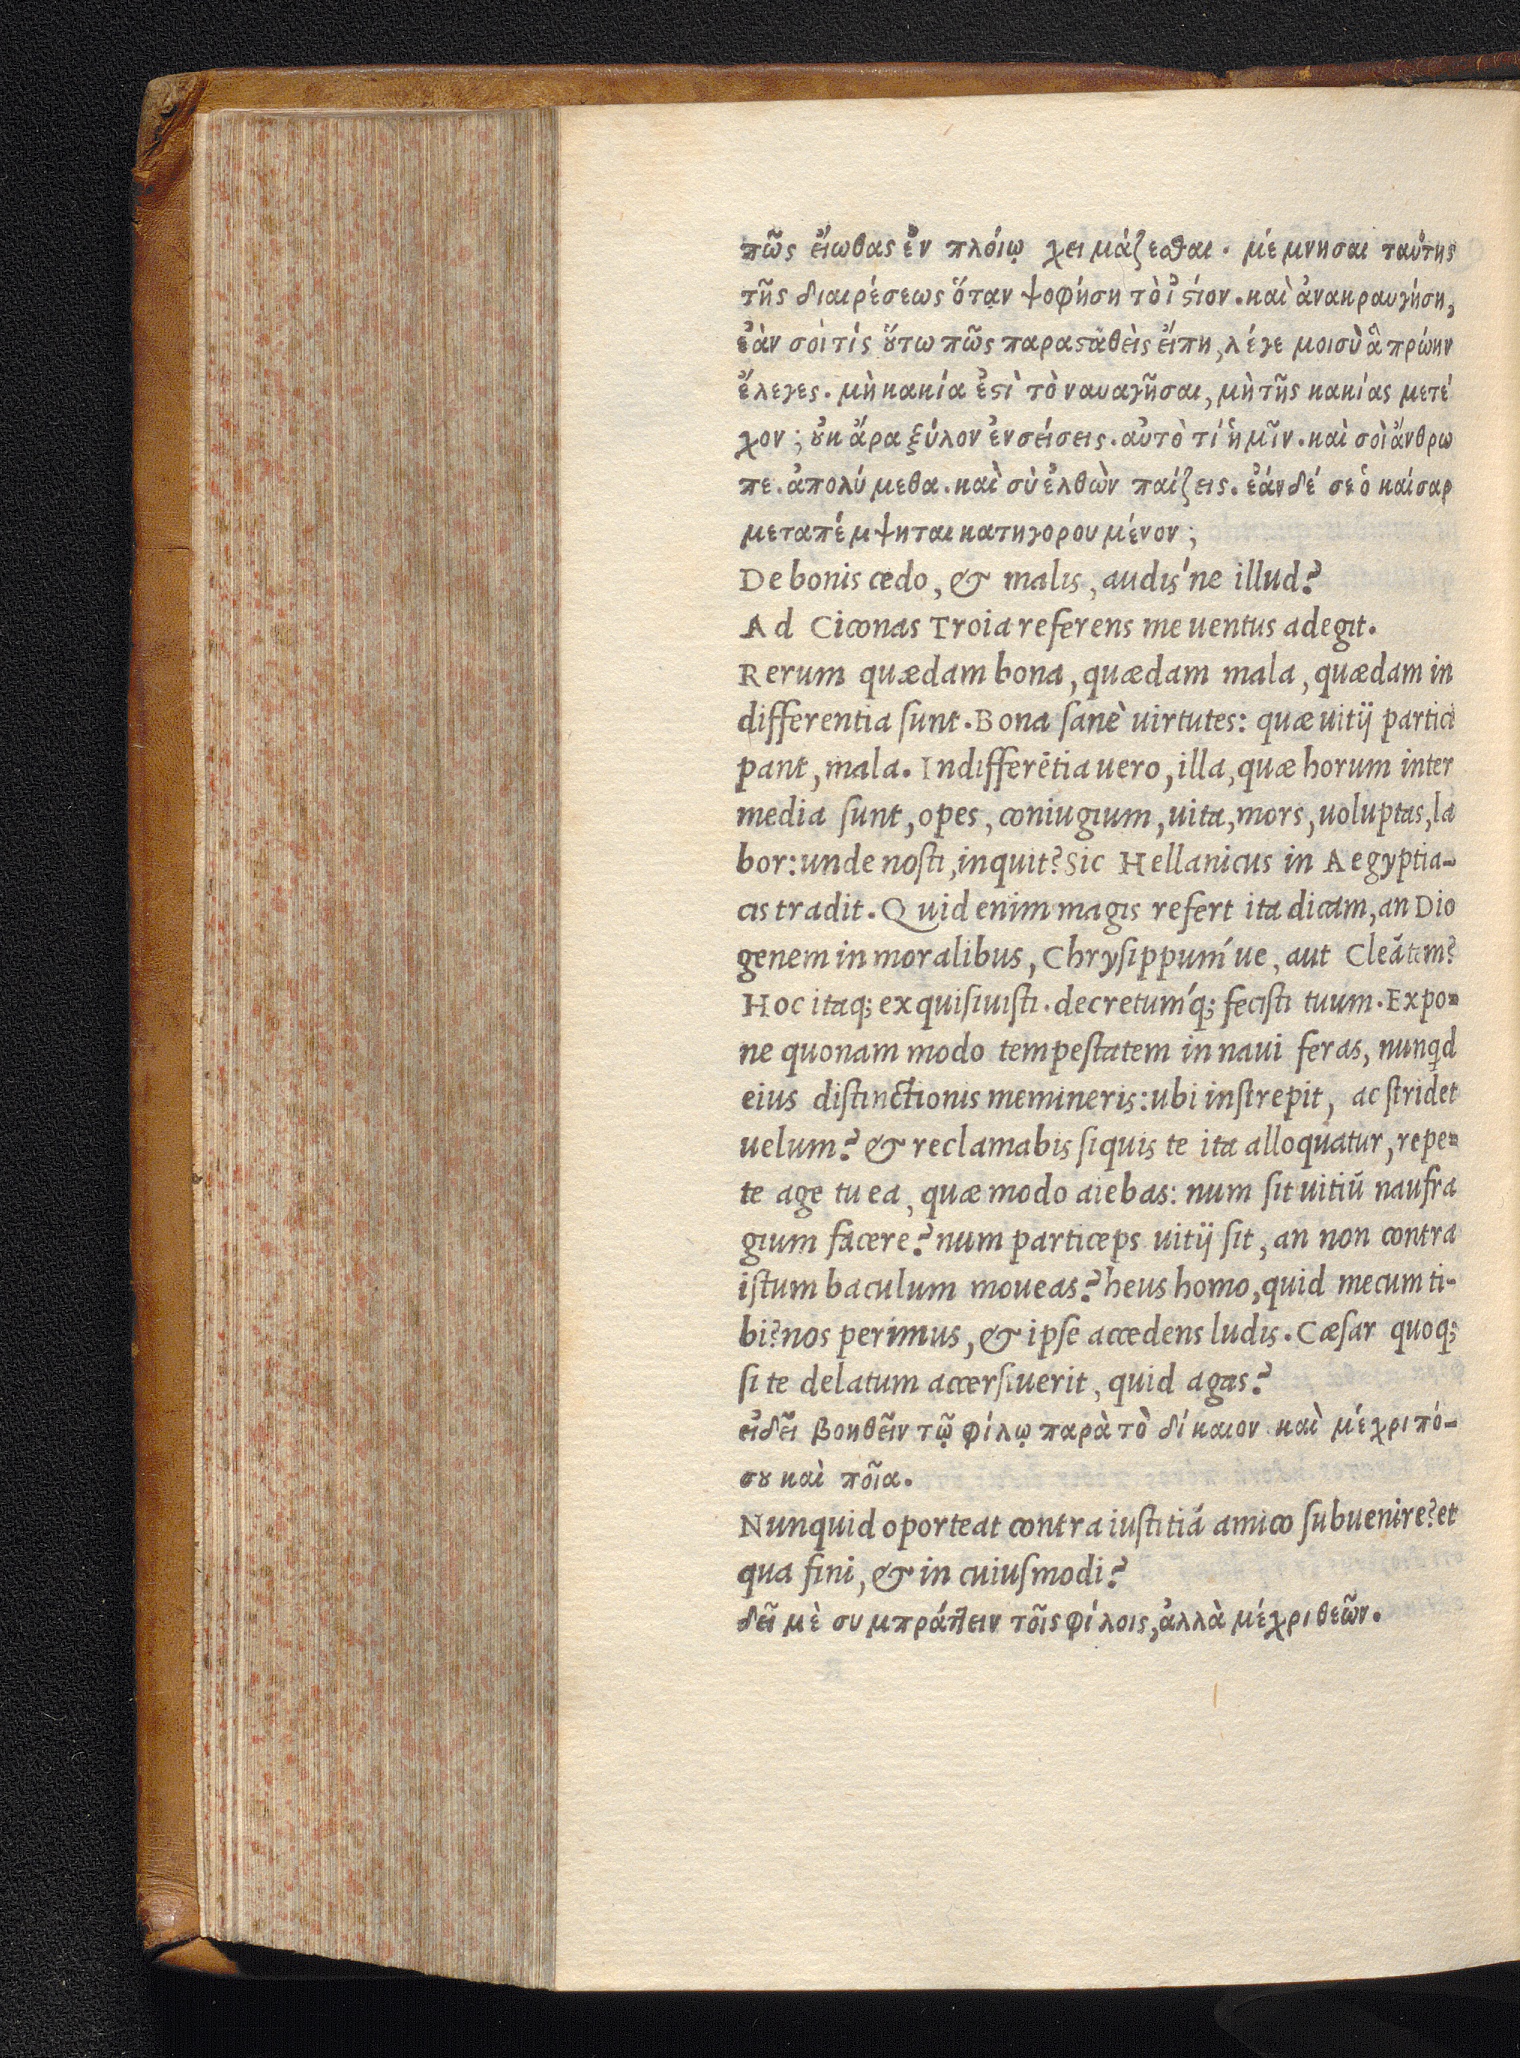 πῶς εἴωθας ἐν πλοίῳ χειμάζεσθαι. μέμνησαι ταύτης
τῆς διαιρέσεως ὅταν ψοφήση τὸ ἱστίον. καὶ ἀνακραυγήση,
ἐὰν σοὶ τίς ὅυτω πῶς παραστὰθεὶς εἴπη, λέγε μοι σὺ ἃ πρώην
ἔλεγες. μὴ κακία ἐστὶ τὸ ναυαγῆσαι, μὴ τῆς κακίας μετέ
χον; ὀυκ ἄρα ξύλον ἐνσείσεις. αὐτὸ τί ἡμῖν. καὶ σοὶ ἄνθρω
πε. ἀπολύμεθα. καὶ σὺ ἐλθὼν παίζεις. ἐάν δέ σε ὁ καίσαρ
μεταπέμψηται κατηγορουμένον;
De bonis cedo, & malis, audis'ne illud?
Ad Ciconas Troia referens me uentus adegit.
Rerum quædam bona, quædam mala, quædam in
differentia ſunt. Bona ſanè uirtutes: quæ uitij partici
pant, mala. Indifferẽtia uero, illa, quæ horum inter
media ſunt, opes, coniugium, uita, mors, uoluptas, la
bor: unde noſti, inquit? Sic Hellanicus in Aegyptia-
cis tradit. Quid enim magis refert ita dicam, an Dio
genem in moralibus, Chryſippum'ue, aut Cleãtem?
Hoc itaq; exquiſiuiſti. decretum'q; feciſti tuum. Expo-
ne quonam modo tempeſtatem in naui feras, nunqd
eius diſtinctionis memineris: ubi inſtrepit, ac ſtridet
uelum? & reclamabis ſiquis te ita alloquatur, repe-
te age tu ea, quæ modo aiebas: num ſit uitiũ naufra
gium facere? num particeps uitij ſit, an non contra
iſtum baculum moueas? heus homo, quid mecum ti-
bi? nos perimus, & ipſe accedens ludis. Cæſar quoq;
ſi te delatum accerſiuerit, quid agas?
εἰ δεῖ βοηθεῖν τῷ φίλῳ παρὰ τὸ δίκαιον καὶ μέχρι πό-
σου καὶ ποῖα.
Nunquid oporteat contra iuſtitiã amico ſubuenire? et
qua fini, & in cuiuſmodi?
δεῖ μὲ συμπράττειν τοῖς φίλοις, ἀλλὰ μέχρι θεῶν.